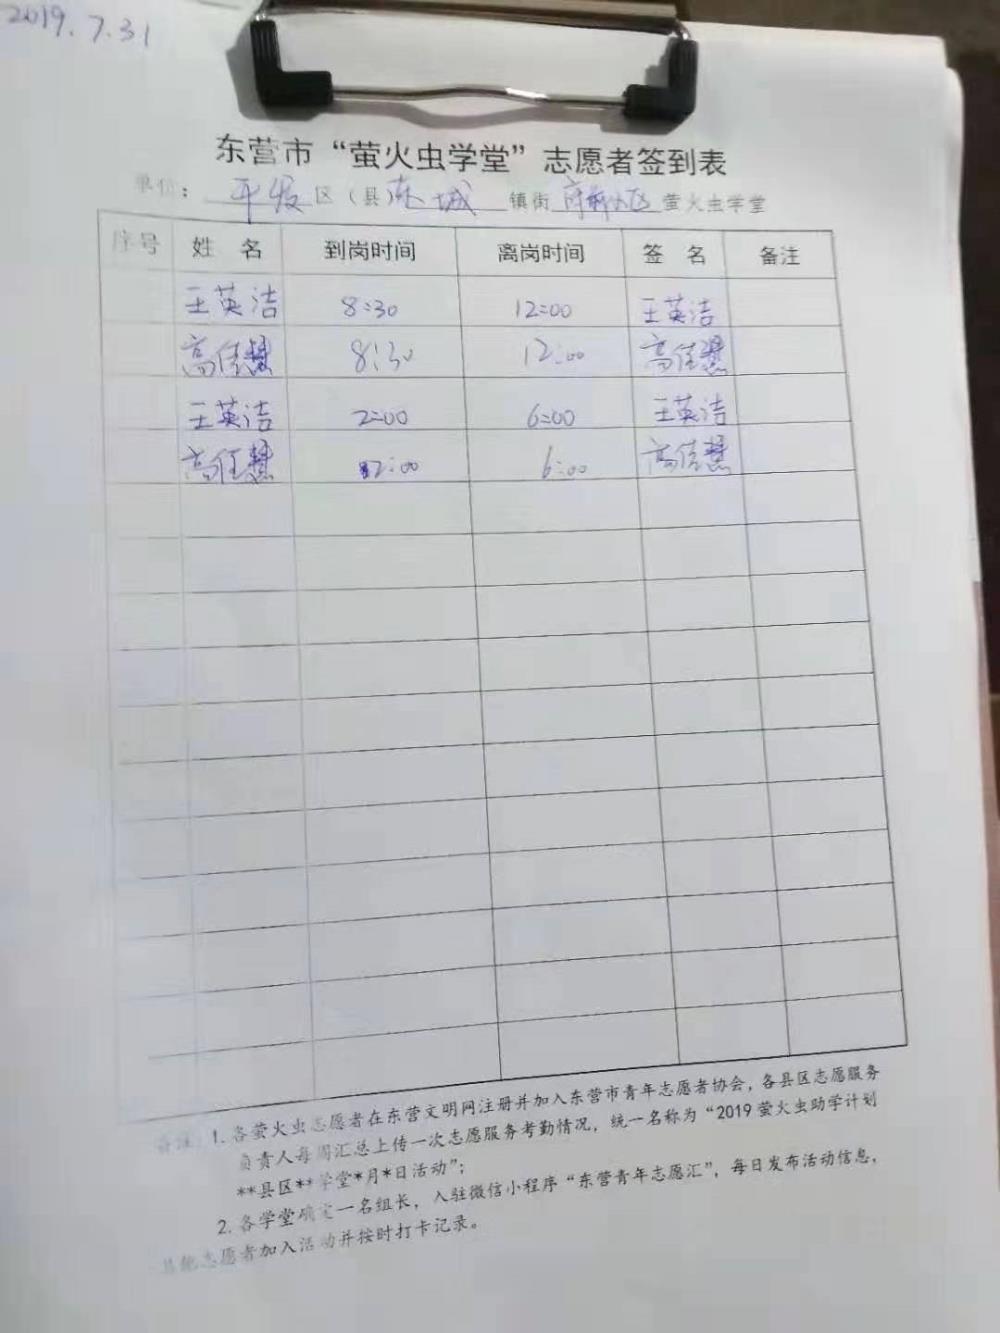 2019.7.31
东营市“萤火虫学堂”志愿者签到表
单位： 区（县）东城 镇街 萤火虫学堂
序号 姓 名 到岗时间 离岗时间 签 名 备注
王英洁 8:30 12:00 王英洁
高佳慧 8:30 12:00 高佳慧
王英洁 2:00 6:00 王英洁
高佳慧 2:00 6:00 高佳慧
备注：1. 各萤火虫志愿者在东营文明网注册并加入东营市青年志愿者协会，各县区志愿服务
负责人每周汇总上传一次志愿服务考勤情况，统一名称为“2019萤火虫助学计划
**县区**学堂*月*日活动”；
2. 各学堂确定一名组长，入驻微信小程序“东营青年志愿汇”，每日发布活动信息，
其他志愿者加入活动并按时打卡记录。